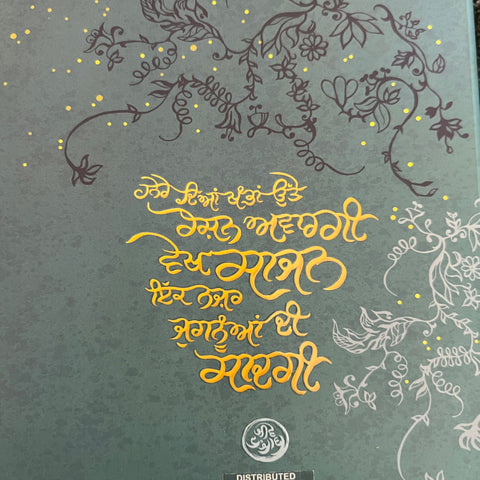 ਹਨੇਰੇ ਦਿਆਂ ਖੰਭਾਂ ਉੱਤੇ
ਰੌਸ਼ਨ ਅਵਾਰਗੀ
ਵੇਖ ਸਾਜਨ
ਇੱਕ ਨਜ਼ਰ
ਜੁਗਨੂੰਆਂ ਦੀ
ਸਾਦਗੀ
DISTRIBUTED